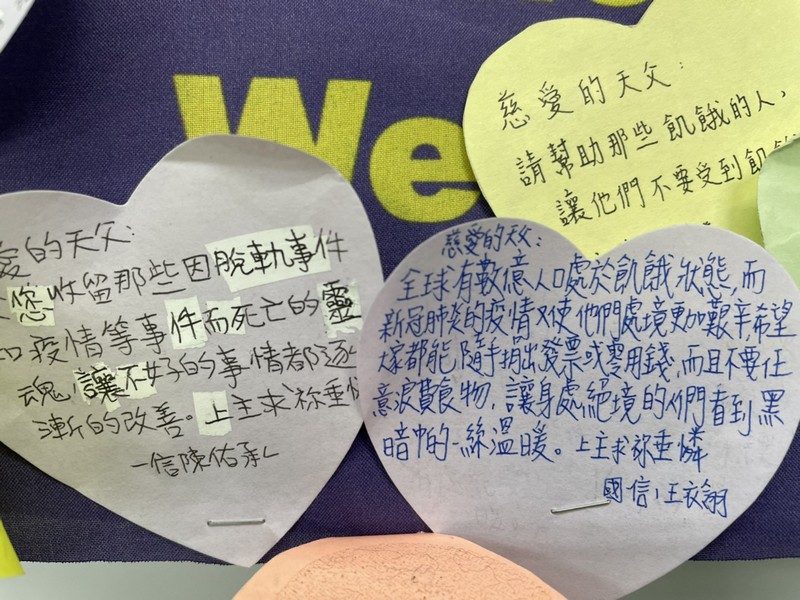 We
慈愛的天父:
請幫助那些飢餓的人,
讓他們不要受到飢餓
愛的天父:
您收留那些因脫軌事件
疫情等事件而死亡的靈
魂,讓不好的事情都逐
漸的改善。上主求祢垂憐
一信陳佑承
慈愛的天父:
全球有數億人口處於飢餓狀態,而
新冠肺炎的疫情又使他們處境更加艱辛,希望
大家都能隨手捐出發票或零用錢,而且不要任
意浪費食物,讓身處絕境的人們看到黑
暗中的一絲溫暖。上主求祢垂憐
國信1王